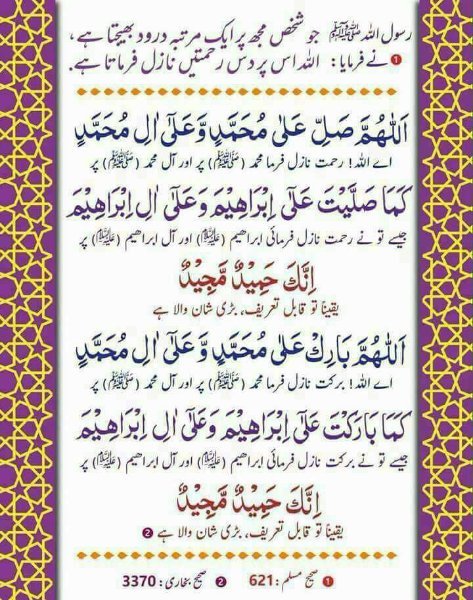 رسول اللہ ﷺ جو شخص مجھ پر ایک مرتبہ درود بھیجتا ہے،
نے فرمایا: اللہ اس پر دس رحمتیں نازل فرماتا ہے. ❶
اَللّٰهُمَّ صَلِّ عَلٰى مُحَمَّدٍ وَّعَلٰٓى اٰلِ مُحَمَّدٍ
اے اللہ! رحمت نازل فرما محمد (ﷺ) پر اور آل محمد (ﷺ) پر
كَمَا صَلَّيْتَ عَلٰٓى اِبْرَاهِيْمَ وَعَلٰٓى اٰلِ اِبْرَاهِيْمَ
جیسے تو نے رحمت نازل فرمائی ابراھیم (علیہ السلام) پر اور آل ابراھیم (علیہ السلام) پر
اِنَّكَ حَمِيْدٌ مَّجِيْدٌ
یقیناً تو قابل تعریف، بڑی شان والا ہے
اَللّٰهُمَّ بَارِكْ عَلٰى مُحَمَّدٍ وَّعَلٰٓى اٰلِ مُحَمَّدٍ
اے اللہ! برکت نازل فرما محمد (ﷺ) پر اور آل محمد (ﷺ) پر
كَمَا بَارَكْتَ عَلٰٓى اِبْرَاهِيْمَ وَعَلٰٓى اٰلِ اِبْرَاهِيْمَ
جیسے تو نے برکت نازل فرمائی ابراھیم (علیہ السلام) پر اور آل ابراھیم (علیہ السلام) پر
اِنَّكَ حَمِيْدٌ مَّجِيْدٌ
یقیناً تو قابل تعریف، بڑی شان والا ہے ❷
❶ صحیح مسلم: 621 ❷ صحیح بخاری: 3370